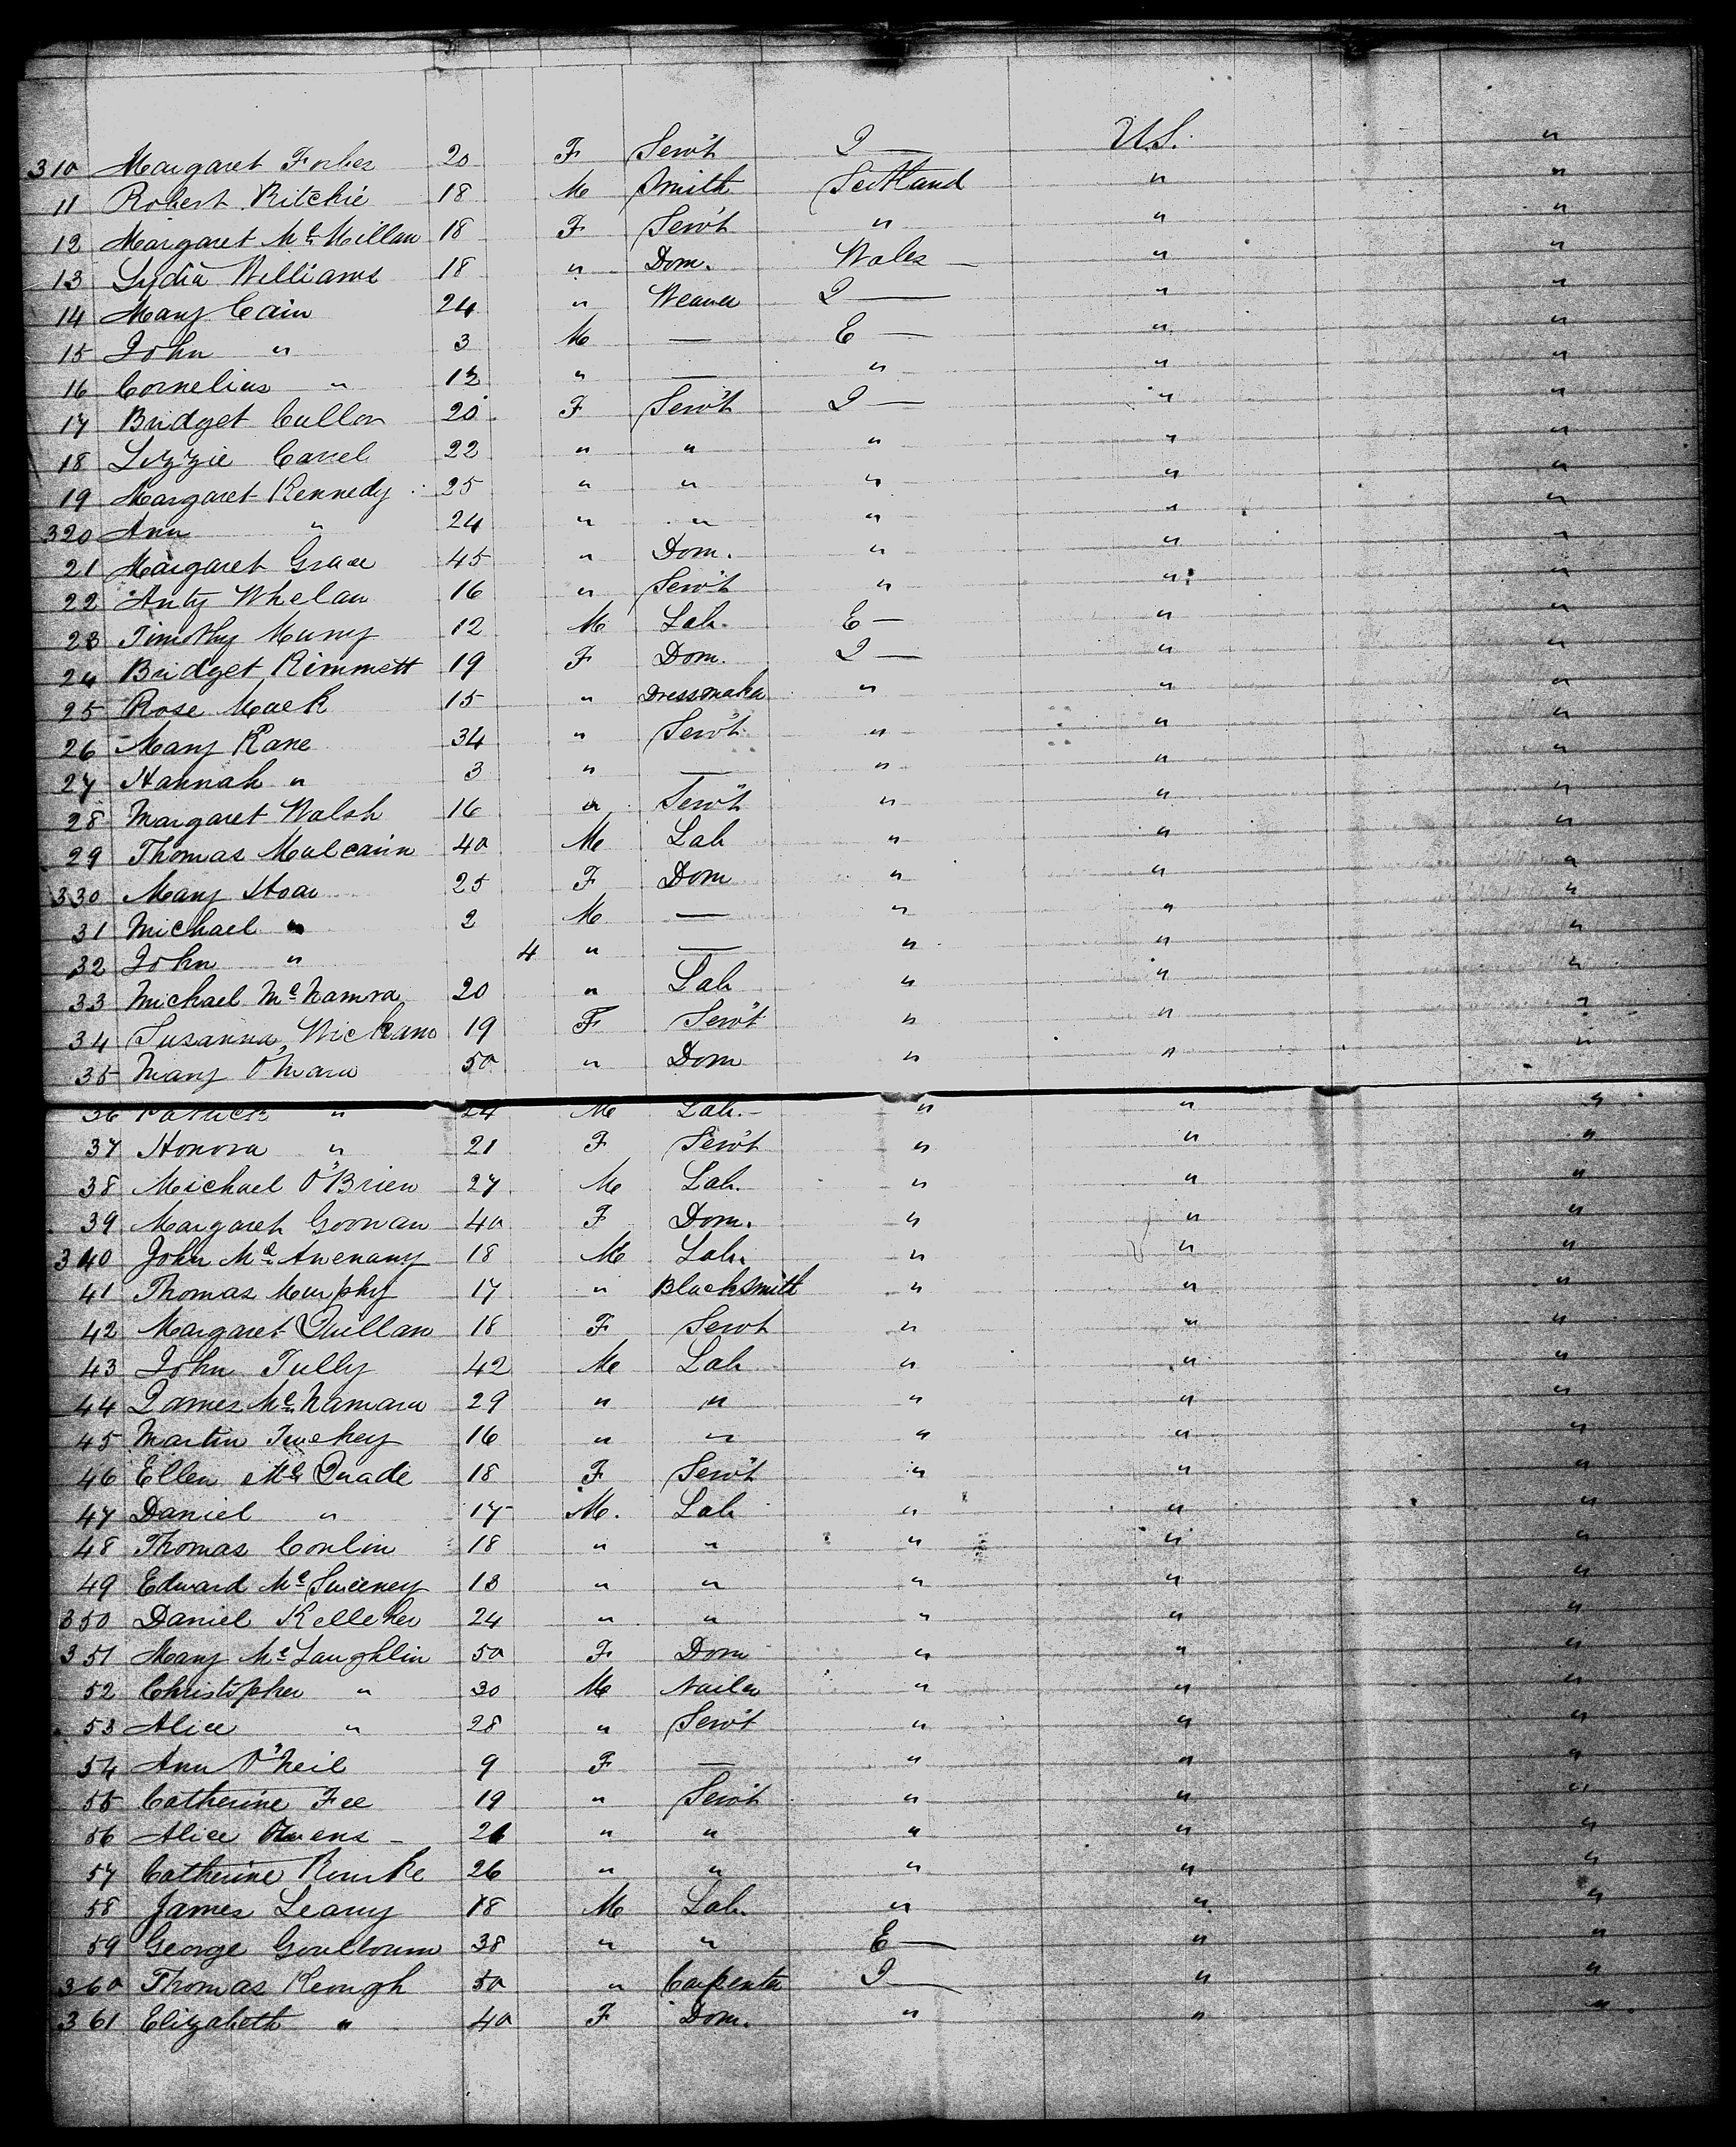 310 Margaret Forbes 20 F Serv't I — U.S. "
11 Robert Ritchie 18 M Smith Scotland " "
12 Margaret McMillan 18 F Serv't " " "
13 Lydia Williams 18 " Dom. Wales — " "
14 Mary Cain 24 " Weaver I — " "
15 John " 3 M — E — " "
16 Cornelius " 12 " — " " "
17 Bridget Cullon 20 F Serv't I — " "
18 Lizzie Carrel 22 " " " " "
19 Margaret Kennedy 25 " " " " "
320 Ann " 24 " " " " "
21 Margaret Grace 45 " Dom. " " "
22 Anty Whelan 16 " Serv't " " "
23 Timothy Murry 12 M Lab. E — " "
24 Bridget Kimmett 19 F Dom. I — " "
25 Rose Mack 15 " Dressmaker " " "
26 Mary Kane 34 " Serv't " " "
27 Hannah " 3 " — " " "
28 Margaret Walsh 16 " Serv't " " "
29 Thomas Mulcairn 40 M Lab " " "
330 Mary Hoar 25 F Dom " " "
31 Michael " 2 M — " " "
32 John " 4 " — " " "
33 Michael McNamra 20 " Lab " " "
34 Susanna Wickans 19 F Serv't " " "
35 Mary O'Mara 50 " Dom " " "
36 Patrick " 24 M Lab. " " "
37 Honora " 21 F Serv't " " "
38 Michael O'Brien 27 M Lab. " " "
39 Margaret Goonan 40 F Dom. " " "
340 John McAwenany 18 M Lab. " " "
41 Thomas Murphy 17 " Blacksmith " " "
42 Margaret Quillan 18 F Servt " " "
43 John Tully 42 M Lab " " "
44 James McNamara 29 " " " " "
45 Martin Tuehey 16 " " " " "
46 Ellen McQuade 18 F Serv't " " "
47 Daniel " 17 M. Lab " " "
48 Thomas Conlin 18 " " " " "
49 Edward McSweeney 18 " " " " "
350 Daniel Kelleher 24 " " " " "
351 Mary McLaughlin 50 F Dom " " "
52 Christopher " 30 M Nailer " " "
53 Alice " 28 " Serv't " " "
54 Ann O'Neil 9 F — " " "
55 Catherine Fee 19 " Serv't " " "
56 Alice Owens 26 " " " " "
57 Catherine Rourke 26 " " " " "
58 James Leary 18 M Lab. " " "
59 George Goulbourn 38 " " E — " "
360 Thomas Keough 50 " Carpenter I — " "
361 Elizabeth " 40 F Dom. " " "